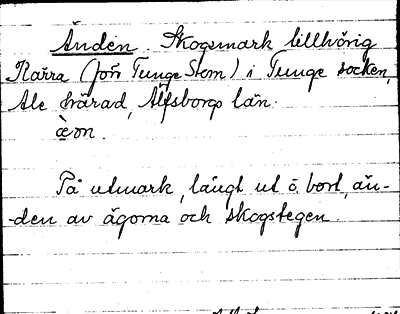 Änden. Skogsmark tillhörig
Närra (för Tunge Stom) i Tunge socken,
Ale härad, Älfsborgs län.
æ̀ᴈn.
På utmark, långt ut o. bort, än-
-den av ägorna och skogstegen.